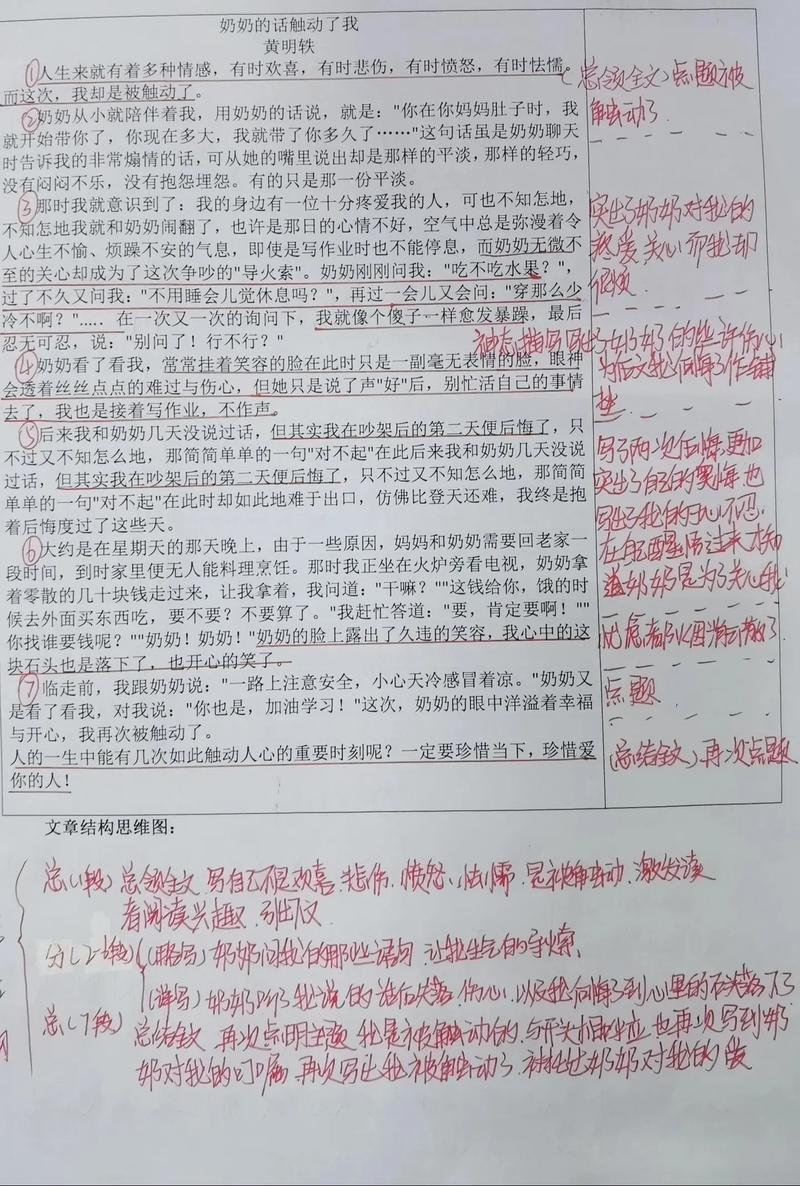 奶奶的话触动了我
黄明轶
①人生来就有着多种情感，有时欢喜，有时悲伤，有时愤怒，有时怯懦。
而这次，我却是被触动了。
②奶奶从小就陪伴着我，用奶奶的话说，就是："你在你妈妈肚子时，我
就开始带你了，你现在多大，我就带了你多久了……"这句话虽是奶奶聊天
时告诉我的非常煽情的话，可从她的嘴里说出却是那样的平淡，那样的轻巧，
没有闷闷不乐，没有抱怨埋怨。有的只是那一份平淡。
③那时我就意识到了：我的身边有一位十分疼爱我的人，可也不知怎地，
不知怎地我就和奶奶闹翻了，也许是那日的心情不好，空气中总是弥漫着令
人心生不愉、烦躁不安的气息，即使是写作业时也不能停息，而奶奶无微不
至的关心却成为了这次争吵的"导火索"。奶奶刚刚问我："吃不吃水果？"，
过了不久又问我："不用睡会儿觉休息吗？"，再过一会儿又会问："穿那么少
冷不啊？"..... 在一次又一次的询问下，我就像个傻子一样愈发暴躁，最后
忍无可忍，说："别问了！行不行？"
④奶奶看了看我，常常挂着笑容的脸在此时只是一副毫无表情的脸，眼神
会透着丝丝点点的难过与伤心，但她只是说了声"好"后，别忙活自己的事情
去了，我也是接着写作业，不作声。
⑤后来我和奶奶几天没说过话，但其实我在吵架后的第二天便后悔了，只
不过又不知怎么地，那简简单单的一句"对不起"在此后来我和奶奶几天没说
过话，但其实我在吵架后的第二天便后悔了，只不过又不知怎么地，那简简
单单的一句"对不起"在此时却如此地难于出口，仿佛比登天还难，我终是抱
着后悔度过了这些天。
⑥大约是在星期天的那天晚上，由于一些原因，妈妈和奶奶需要回老家一
段时间，到时家里便无人能料理烹饪。那时我正坐在火炉旁看电视，奶奶拿
着零散的几十块钱走过来，让我拿着，我问道："干嘛？""这钱给你，饿的时
候去外面买东西吃，要不要？不要算了。"我赶忙答道："要，肯定要啊！""
你找谁要钱呢？""奶奶！奶奶！"奶奶的脸上露出了久违的笑容，我心中的这
块石头也是落下了，也开心的笑了。
⑦临走前，我跟奶奶说："一路上注意安全，小心天冷感冒着凉。"奶奶又
是看了看我，对我说："你也是，加油学习！"这次，奶奶的眼中洋溢着幸福
与开心，我再次被触动了。
人的一生中能有几次如此触动人心的重要时刻呢？一定要珍惜当下，珍惜爱
你的人！
（总领全文）点题被
触动了.
突出了奶奶对我的
热爱、关心而我却
很烦.
神态描写写出了奶奶的些许伤心
为后文我后悔了作铺
垫.
写了两次后悔更加
突出了自己的
写出了我的于心不忍.
在自己醒悟过来才知
道奶奶是为了关心我
点题
（总结全文）再次点题
文章结构思维图：
总（1段）总领全文 写自己不是欢喜、悲伤、愤怒、怯懦 是被触动、激发读
者阅读兴趣、引出下文
分（2-6段）（略写）奶奶问我的那些语句 让我生气的导火索.
（详写）奶奶听了我说的话后失落、伤心，以及我后悔了到心里的石头落下了
总（7段）总结全文 再次点明主题 我是被触动的、与开头相呼应 也再次写到奶
奶对我的叮嘱 再次写出我被触动了